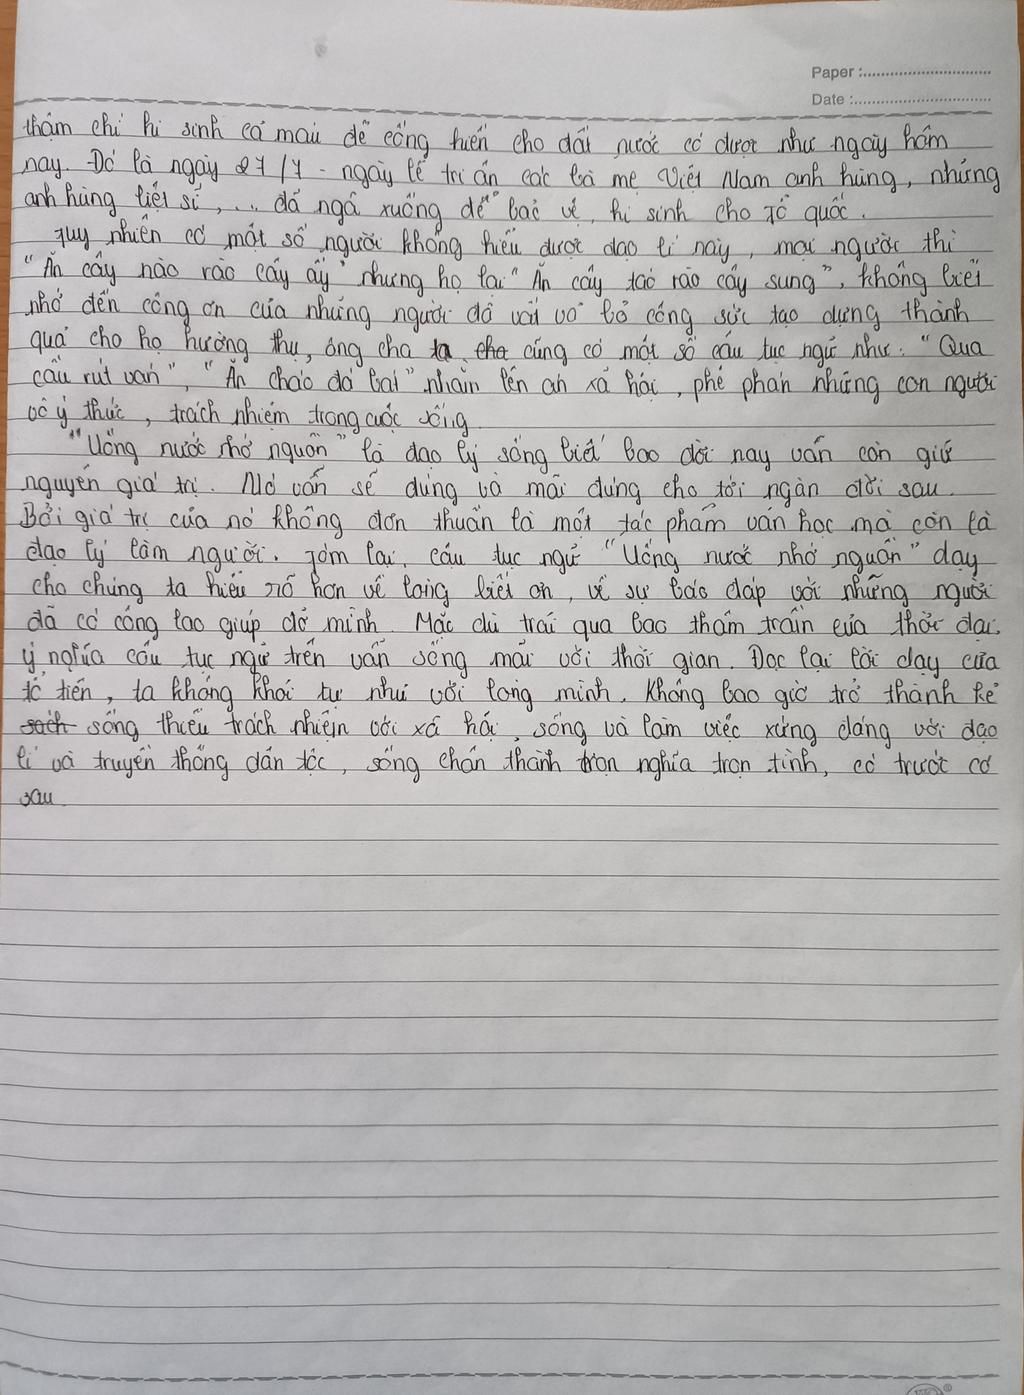 Paper :
Date :
thậm chí hi sinh cả máu để cống hiến cho đất nước có được như ngày hôm
nay. Đó là ngày 27/7 - ngày lễ tri ân các bà mẹ Việt Nam anh hùng, những
anh hùng liệt sĩ, ... đã ngã xuống để bảo vệ, hi sinh cho Tổ quốc.
Tuy nhiên có một số người không hiểu được đạo lí này, mọi người thì
"Ăn cây nào rào cây ấy" nhưng họ lại "Ăn cây táo rào cây sung", không biết
nhớ đến công ơn của những người đã vất vả bỏ công sức tạo dựng thành
quả cho họ hưởng thụ, ông cha ta cũng có một số câu tục ngữ như: "Qua
cầu rút ván", "Ăn cháo đá bát" nhằm lên án xã hội, phê phán những con người
vô ý thức, trách nhiệm trong cuộc sống
"Uống nước nhớ nguồn" là đạo lý sống biết bao đời nay vẫn còn giữ
nguyên giá trị. Nó vẫn sẽ đúng và mãi đúng cho tới ngàn đời sau.
Bởi giá trị của nó không đơn thuần là một tác phẩm văn học mà còn là
đạo lý làm người. Tóm lại, câu tục ngữ "Uống nước nhớ nguồn" dạy
cho chúng ta hiểu rõ hơn về lòng biết ơn, về sự báo đáp với những người
đã có công lao giúp đỡ mình. Mặc dù trải qua bao thăm trầm của thời đại,
ý nghĩa câu tục ngữ trên vẫn sống mãi với thời gian. Đọc lại lời dạy của
tổ tiên, ta không khỏi tự nhủ với lòng mình. Không bao giờ trở thành kẻ
sống thiếu trách nhiệm với xã hội, sống và làm việc xứng đáng với đạo
lí và truyền thống dân tộc, sống chân thành trọn nghĩa trọn tình, có trước có
sau.